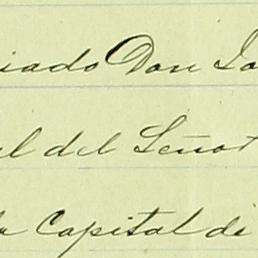 iado Don Jo
el del Señor
la Capital de